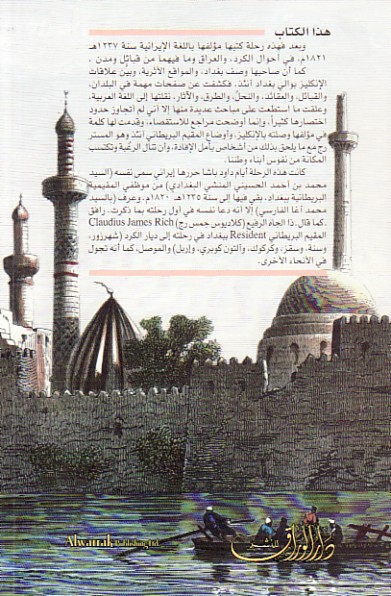 هذا الكتاب
وبعد فهذه رحلة كتبها مؤلفها باللغة الإيرانية سنة ١٢٣٧هـ
١٨٢١م، في أحوال الكرد، والعراق وما فيهما من قبائل ومدن،
كما أن صاحبها وصف بغداد، والمواقع الأثرية، وبين علاقات
الإنكليز بوالي بغداد آنئذ. فكشفت عن صفحات مهمة في البلدان،
والقبائل، والعقائد، والنحل، والطرق، والآثار، نقلتها إلى اللغة العربية،
وعلقت ما استطعت على مباحث عديدة منها إلا أني لم أتجاوز حدود
اختصارها كثيراً، وإنما أوضحت مراجع للاستقصاء، وقدمت لها كلمة
في مؤلفها وصلته بالإنكليز، وأوضاع المقيم البريطاني آنئذ وهو المستر
رج مع ما يلحق بذلك من أشخاص بأمل الإفادة، وأن تنال الرغبة وتكتسب
المكانة من نفوس أبناء وطننا.
كانت هذه الرحلة أيام داود باشا حررها إيراني سمى نفسه (السيد
محمد بن أحمد الحسيني المنشي البغدادي) من موظفي المقيمية
البريطانية ببغداد، بقي فيها إلى سنة ١٢٣٥هـ ١٨٢٠م، وعرف (بالسيد
محمد آغا الفارسي) إلا أنه دعا نفسه في أول رحلته بما ذكرت، رافق
كما قال: ذا الجاه الرفيع (كلاديوس جمس رج) Claudius James Rich
المقيم البريطاني Resident ببغداد في رحلته إلى ديار الكرد (شهرزور،
وسنة، وسقز، وكركوك، وآلتون كوبري، وإربل) والموصل، كما أنه تجول
في الأنحاء الأخرى.
Alwarrak Publishing Ltd.
دار الوراق للنشر